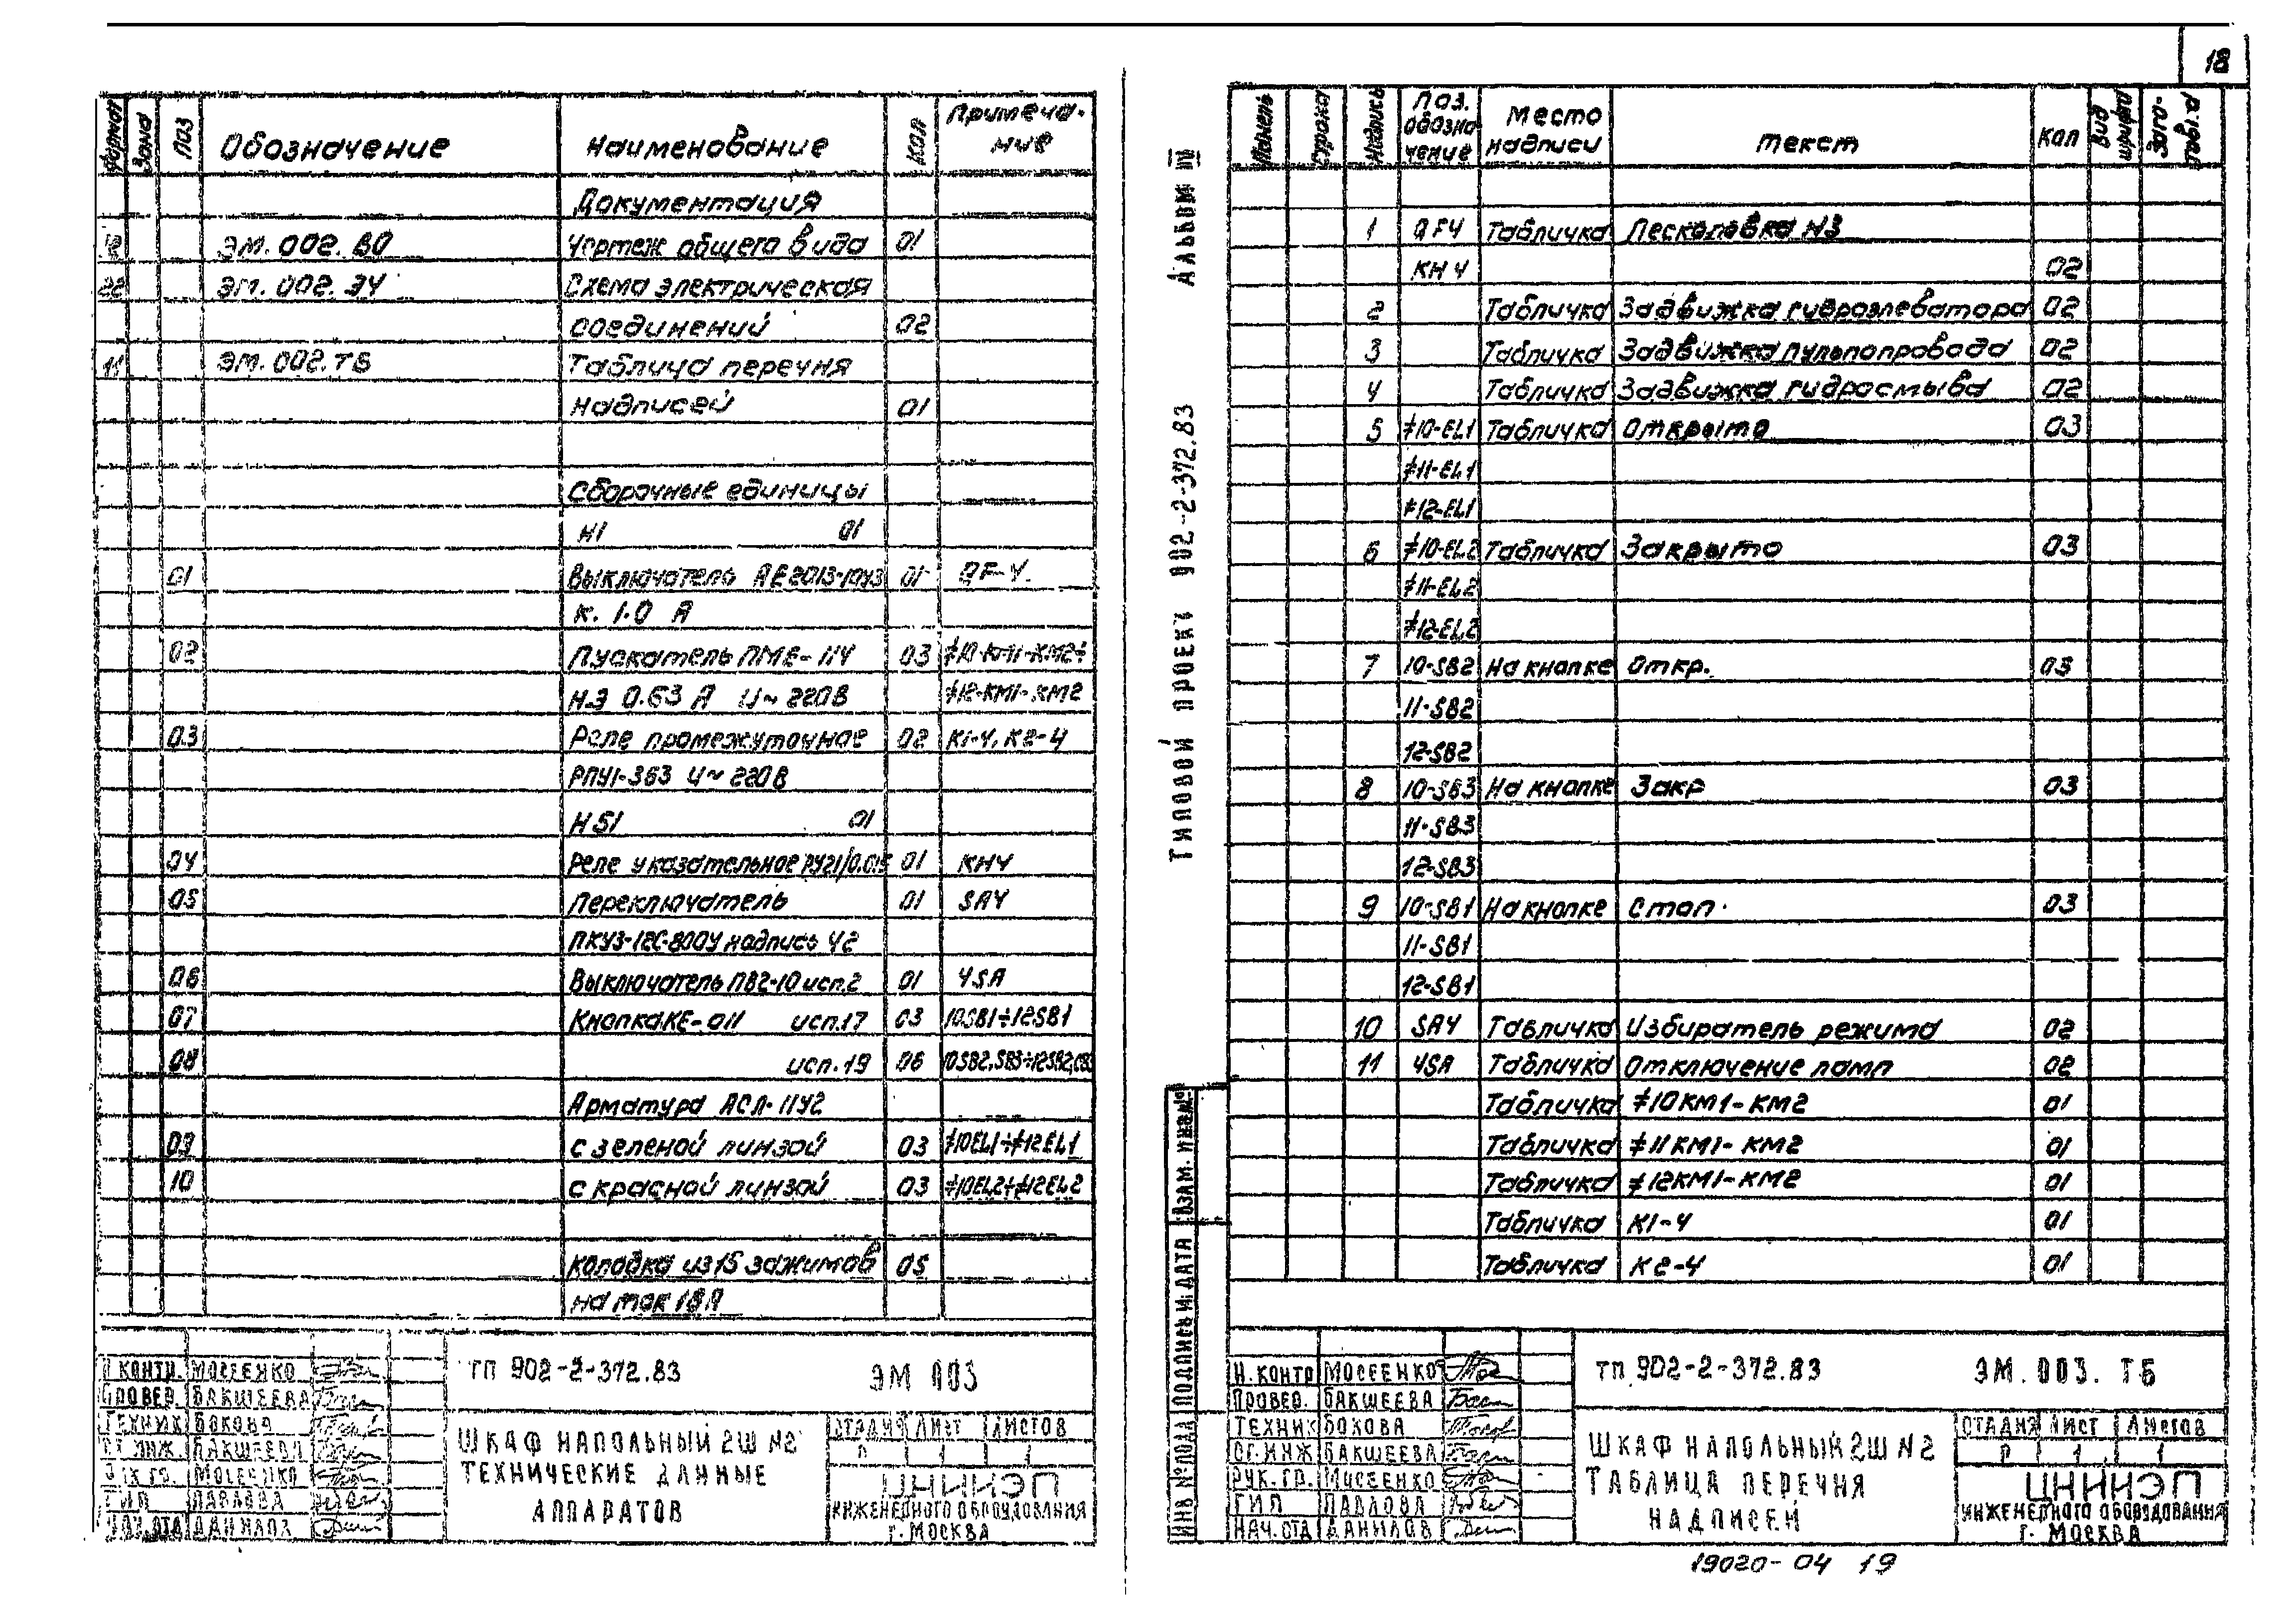 18
Формат Зона Поз Обозначение Наименование Кол Примеча-
ние
Документация
12 ЭМ. 002. ВО Чертеж общего вида 01
22 ЭМ. 002. Э4 Схема электрическая
соединений 02
11 ЭМ. 002. ТБ Таблица перечня
надписей 01
Сборочные единицы
Н1 01
01 Выключатель АЕ2013-10У3 01 QF-4.
к. 1.0 А
02 Пускатель ПМЕ-114 03 ≠10-КМ1-КМ2÷
Н.Э 0.63 А U~220В ≠12-КМ1-КМ2
03 Реле промежуточное 02 К1-4, К2-4
РПУ1-363 U~220В
Н51 01
04 Реле указательное РУ21/0.015 01 КН4
05 Переключатель 01 SA4
ПКУ3-12С-8004 надпись 42
06 Выключатель ПВ2-10 исп.2 01 4SA
07 Кнопка КЕ-011 исп.17 03 10SB1÷12SB1
08 исп.19 06 10SB2,SB3÷12SB2,SB3
Арматура АСЛ-11У2
09 с зеленой линзой 03 ≠10EL1÷≠12EL1
10 с красной линзой 03 ≠10EL2÷≠12EL2
Колодка из 15 зажимов 05
на ток 18А
Н.КОНТР. МОСЕЕНКО
ПРОВЕР. БАКШЕЕВА
ТЕХНИК БОКОВА
СТ.ИНЖ. БАКШЕЕВА
РУК.ГР. МОСЕЕНКО
ГИП ПАВЛОВА
НАЧ.ОТД ДАНИЛОВ
ТП 902-2-372.83 ЭМ 003
ШКАФ НАПОЛЬНЫЙ 2Ш №2
ТЕХНИЧЕСКИЕ ДАННЫЕ
АППАРАТОВ
СТАДИЯ ЛИСТ ЛИСТОВ
Р 1 1
ЦНИИЭП
ИНЖЕНЕРНОГО ОБОРУДОВАНИЯ
Г. МОСКВА
ТИПОВОЙ ПРОЕКТ 902-2-372.83 АЛЬБОМ IV
ИНВ № ПОДЛ ПОДПИСЬ И ДАТА ВЗАМ. ИНВ.№
Панель Строка Надпись Поз. обозна-чение Место надписи Текст Кол Вид шрифта Заго-тавл.
1 QF4 Табличка Песколовка №3
КН4 02
2 Табличка Задвижка гидроэлеватора 02
3 Табличка Задвижка пульпопровода 02
4 Табличка Задвижка гидросмыва 02
5 ≠10-EL1 Табличка Открыто 03
≠11-EL1
≠12-EL1
6 ≠10-EL2 Табличка Закрыто 03
≠11-EL2
≠12-EL2
7 10-SB2 На кнопке Откр. 03
11-SB2
12-SB2
8 10-SB3 На кнопке Закр 03
11-SB3
12-SB3
9 10-SB1 На кнопке Стоп. 03
11-SB1
12-SB1
10 SA4 Табличка Избиратель режима 02
11 4SA Табличка Отключение ламп 02
Табличка ≠10КМ1-КМ2 01
Табличка ≠11КМ1-КМ2 01
Табличка ≠12КМ1-КМ2 01
Табличка К1-4 01
Табличка К2-4 01
Н.КОНТР МОСЕЕНКО
ПРОВЕР. БАКШЕЕВА
ТЕХНИК БОКОВА
СТ.ИНЖ БАКШЕЕВА
РУК.ГР. МОСЕЕНКО
ГИП ПАВЛОВА
НАЧ.ОТД ДАНИЛОВ
ТП 902-2-372.83 ЭМ. 003. ТБ
ШКАФ НАПОЛЬНЫЙ 2Ш №2
ТАБЛИЦА ПЕРЕЧНЯ
НАДПИСЕЙ
СТАДИЯ ЛИСТ ЛИСТОВ
Р 1 1
ЦНИИЭП
ИНЖЕНЕРНОГО ОБОРУДОВАНИЯ
Г. МОСКВА
19020-04 19